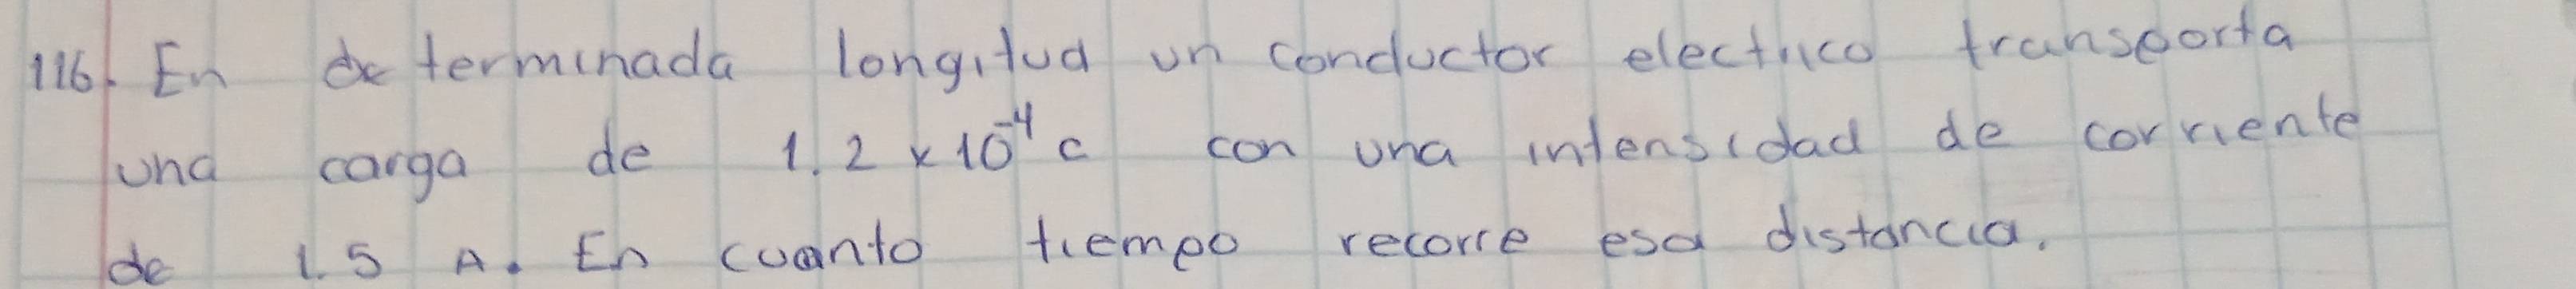 116. En determinada longitud un conductor electrico transporta
una carga de 1.2 x 10⁻⁴ c con una intensidad de corriente
de 1.5 A. En cuanto tiempo recorre esa distancia.